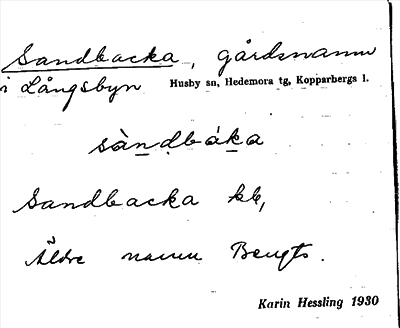 Sandbacka, gårdsnamn
i Långsbyn Husby sn, Hedemora tg, Kopparbergs l.
sàndbáka
Sandbacka kk,
Äldre namn Bengts.
Karin Hessling 1930